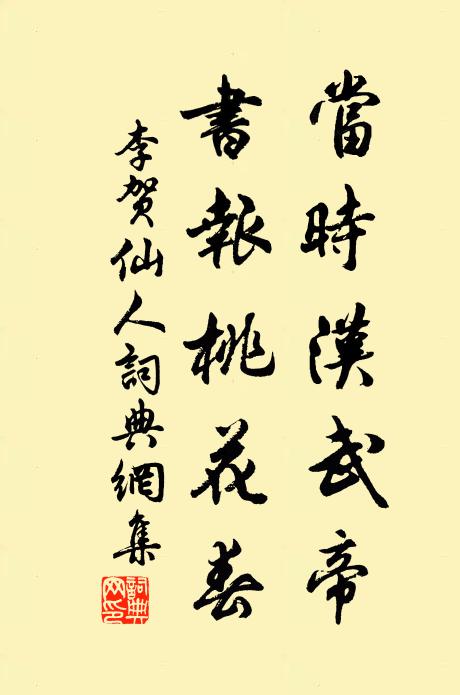 當時漢武帝
書報桃花春
李贺仙人詞典網集
詞典网印